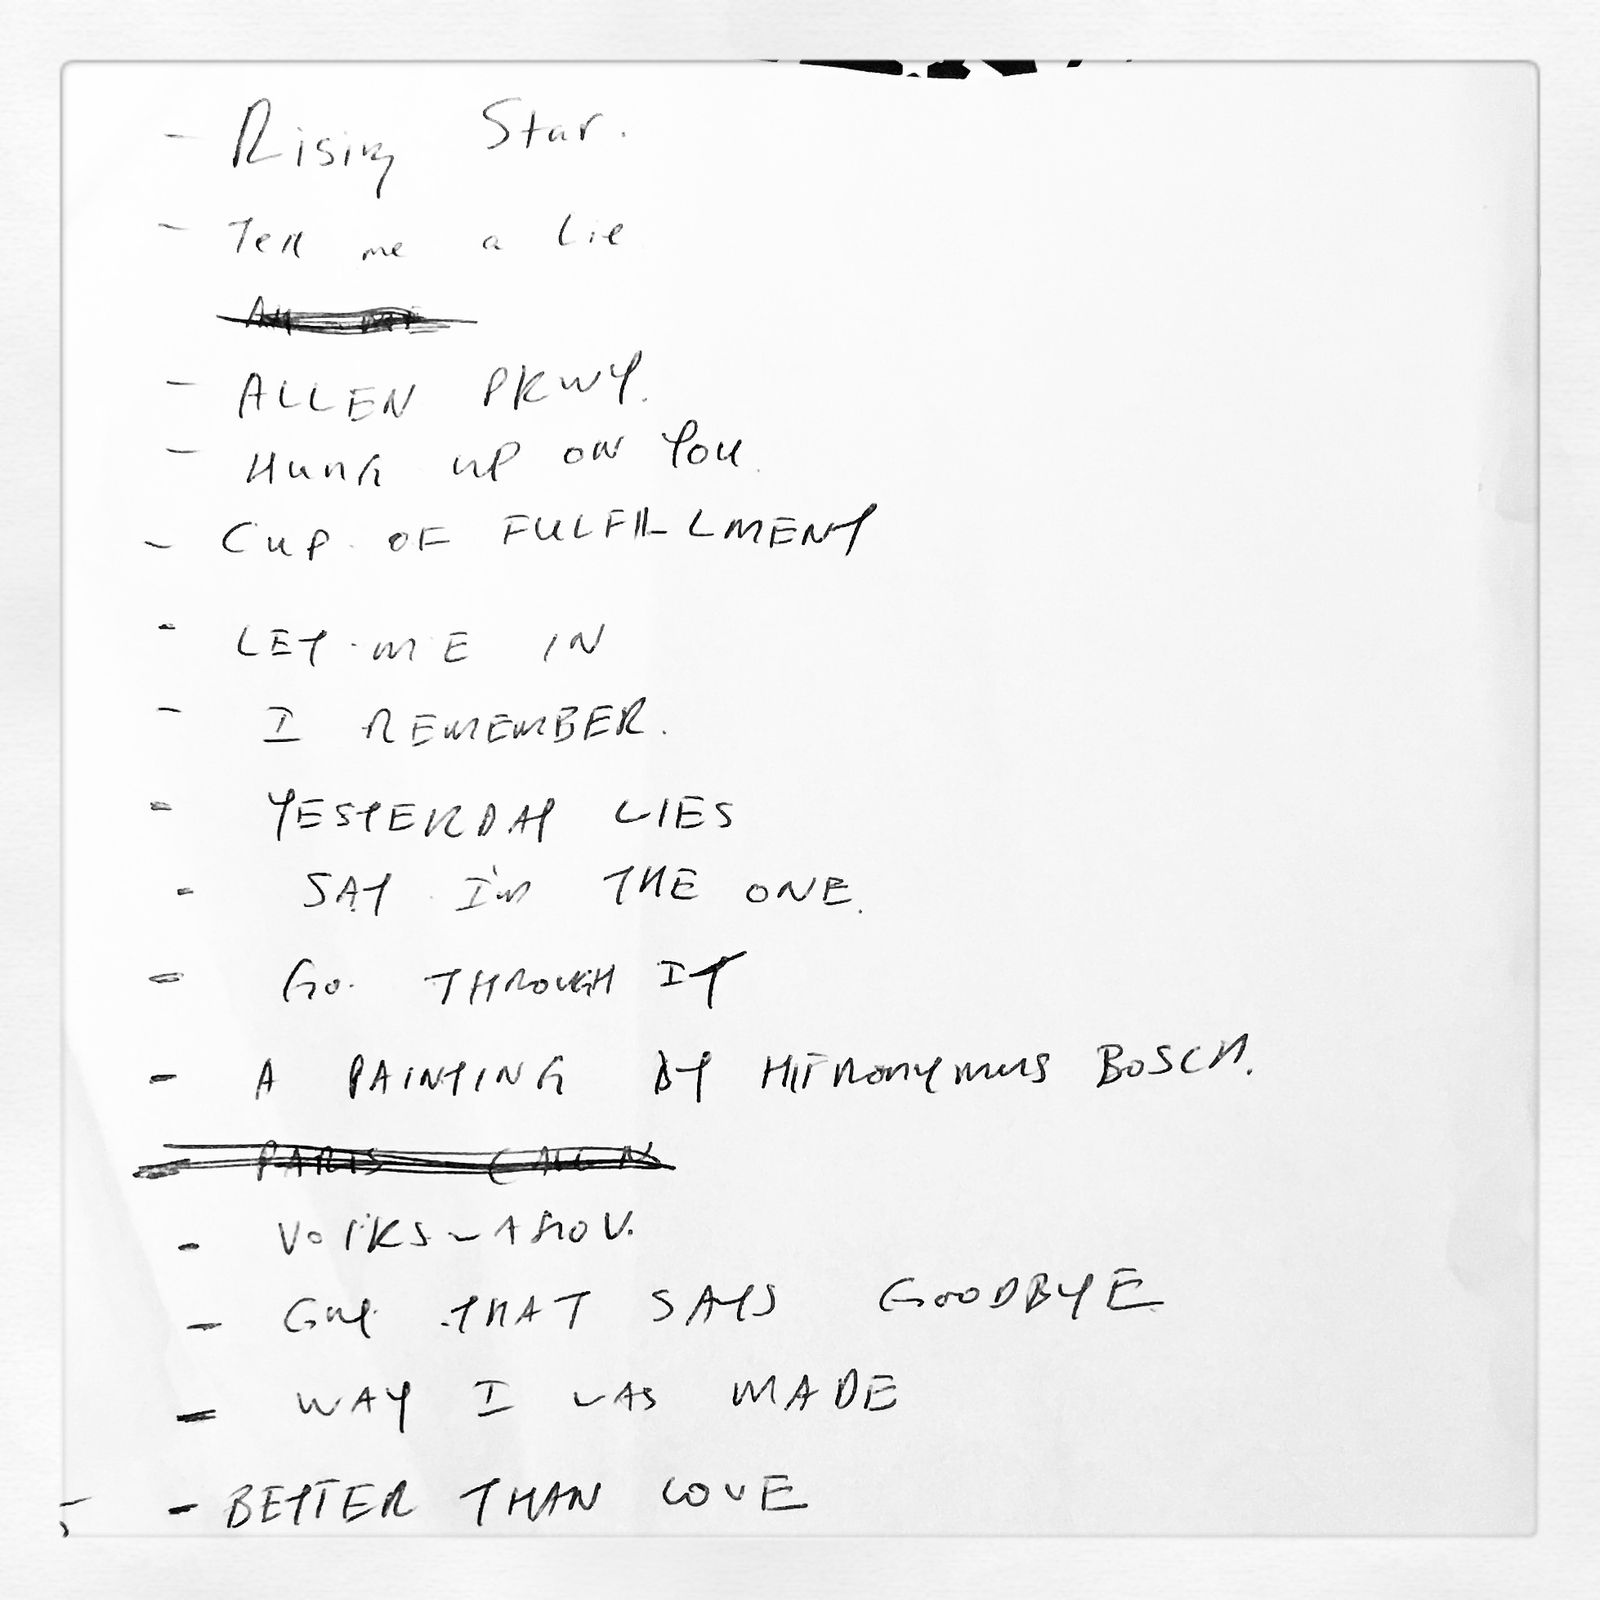 - Rising Star.
- Tell me a Lie
- ALLEN PKWY.
- HUNG UP ON YOU.
- CUP OF FULFILLMENT
- LET ME IN
- I REMEMBER.
- YESTERDAY LIES
- SAY I'm THE ONE.
- GO THROUGH IT
- A PAINTING BY HIERONYMUS BOSCH.
- PARIS
- GUY THAT SAYS GOODBYE
- WAY I WAS MADE
- BETTER THAN LOVE